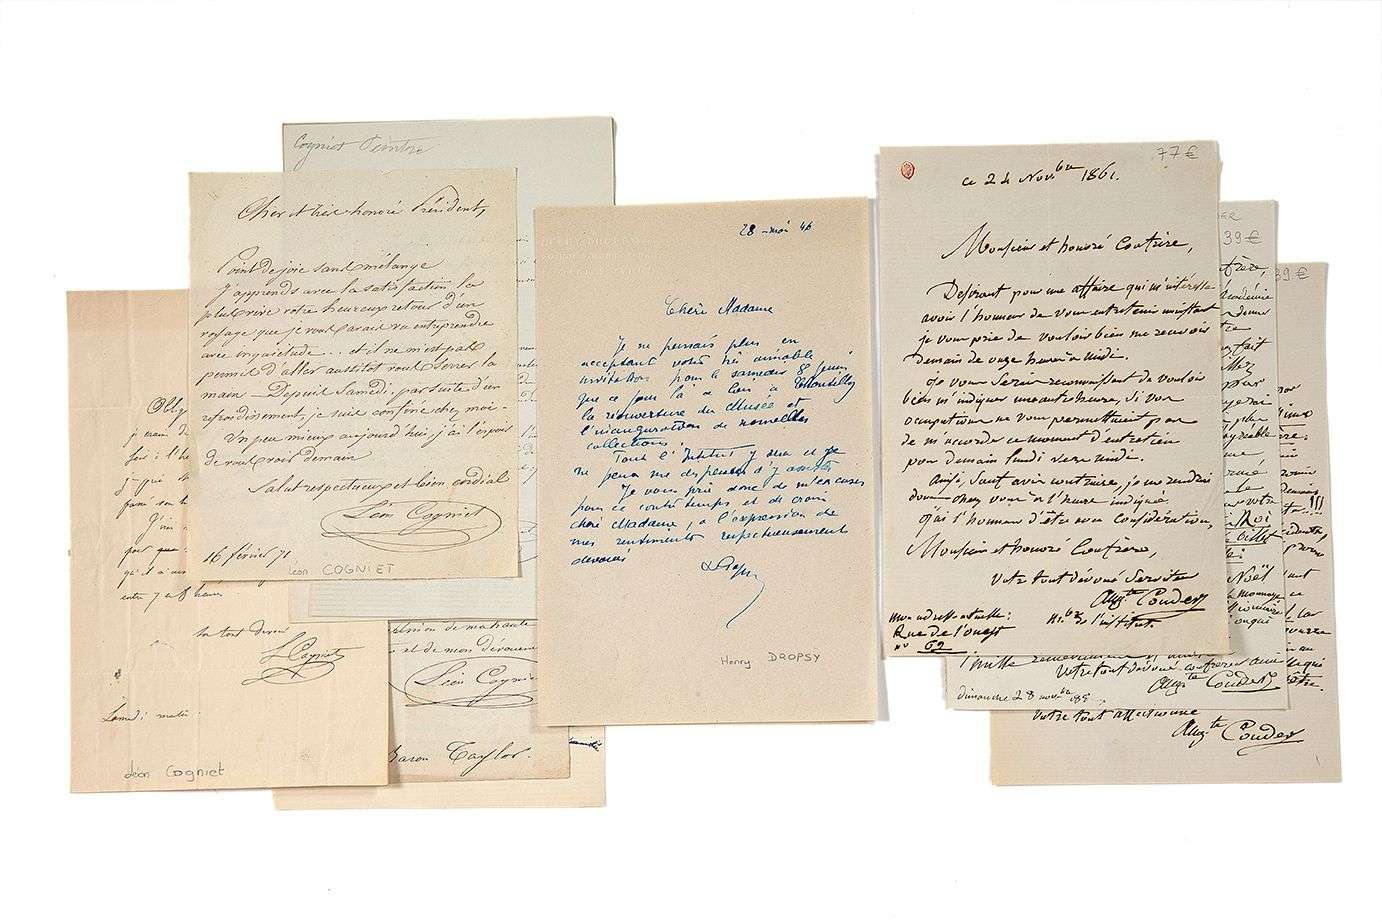 Cogniet Peintre
Cher et très honoré Président,
Point de joie sans mélange
J'apprends avec la satisfaction la
plus vive votre heureux retour d'un
voyage que je vous avais vu entreprendre
avec inquiétude... et il ne m'est pas
permis d'aller aussitot vous serrer la
main. Depuis Samedi, par suite d'un
refroidissement, je suis confiné chez moi.
Un peu mieux aujourd'hui j'ai l'espoir
de vous voir demain
Salut respectueux et bien cordial
Léon Cogniet
16 février 71
Léon COGNIET
Oblig
je crains d
d'que
J'irai
pour que
entre 7 et 8 heures.
Le tout dévoué
L Cogniet
Samedi matin
Léon Cogniet
et de mon dévouem
Léon Cogni
Baron Taylor.
28 - mai 46
Chère Madame
Je ne pensais plus en
acceptant votre très aimable
invitation pour le samedi 8 juin
que ce jour là a lieu à Chantilly
la réouverture du Musée et
l'inauguration de nouvelles
collections.
Tout l'Institut y sera et je
ne peux me dispenser d'y assister
Je vous prie donc de m'excuser
pour ce contre temps et de croire
chère Madame, a l'expression de
mes sentiments respectueusement
dévoués
H Dropsy
Henry DROPSY
77 €
Ce 24 Novbre 1861.
Monsieur et honoré Confrère,
Desirant pour une affaire qui m'intéresse
avoir l'honneur de vous entretenir un instant
je vous prie de vouloir bien me recevoir
Demain de onze heures à midi.
Je vous serai reconnaissant de vouloir
bien m'indiquer une autre heure, si vos
occupations ne vous permettaient pas
de m'accorder ce moment d'entretien
pour demain lundi vers midi.
Ainsi, sauf avis contraire, je me rendrai
donc chez vous a l'heure indiquée
J'ai l'honneur d'être avec considération,
Monsieur et honoré Confrère,
Votre tout dévoué Serviteur
Augte Couder
Mbre de l'institut.
Mon adresse actuelle:
Rue de l'ouest
no 62
ER
39 €
frère,
académie
fait
par
votre
Moi
billet
Noël
Votre tout dévoué confrère et ami
Augte Couder
dimanche 28 novbre 185
39 €
!!!
Votre tout affectionné
Augte Couder